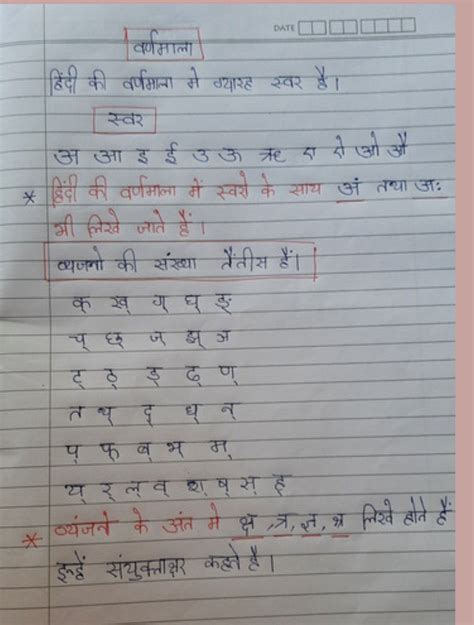 DATE
वर्णमाला
हिंदी की वर्णमाला मे ग्यारह स्वर है।
स्वर
अ आ इ ई उ ऊ ऋ ए ऐ ओ औ
* हिंदी की वर्णमाला में स्वरो के साथ अं तथा अः
भी लिखे जाते हैं।
व्यजनो की संख्या तैंतीस हैं।
क ख् ग् घ् ङ्
च् छ् ज् झ् ञ
ट् ठ् ड् ढ् ण्
त थ् द् ध् न्
प् फ् ब् भ् म्
य् र् ल् व् श् ष् स् ह्
* व्यंजनो के अंत मे क्ष, त्र, ज्ञ, श्र लिखे होते हैं
इन्हें संयुक्ताक्षर कहते है।